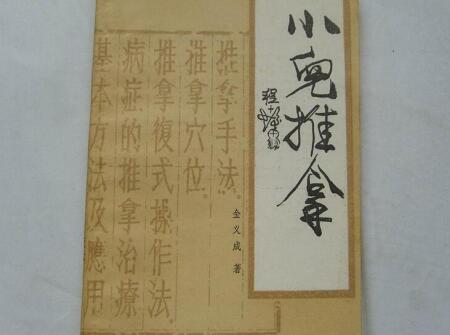 小兒推拿
金义成 著
推拿手法。
推拿穴位。
推拿復式操作法。
病症的推拿治療
基本方法及應用